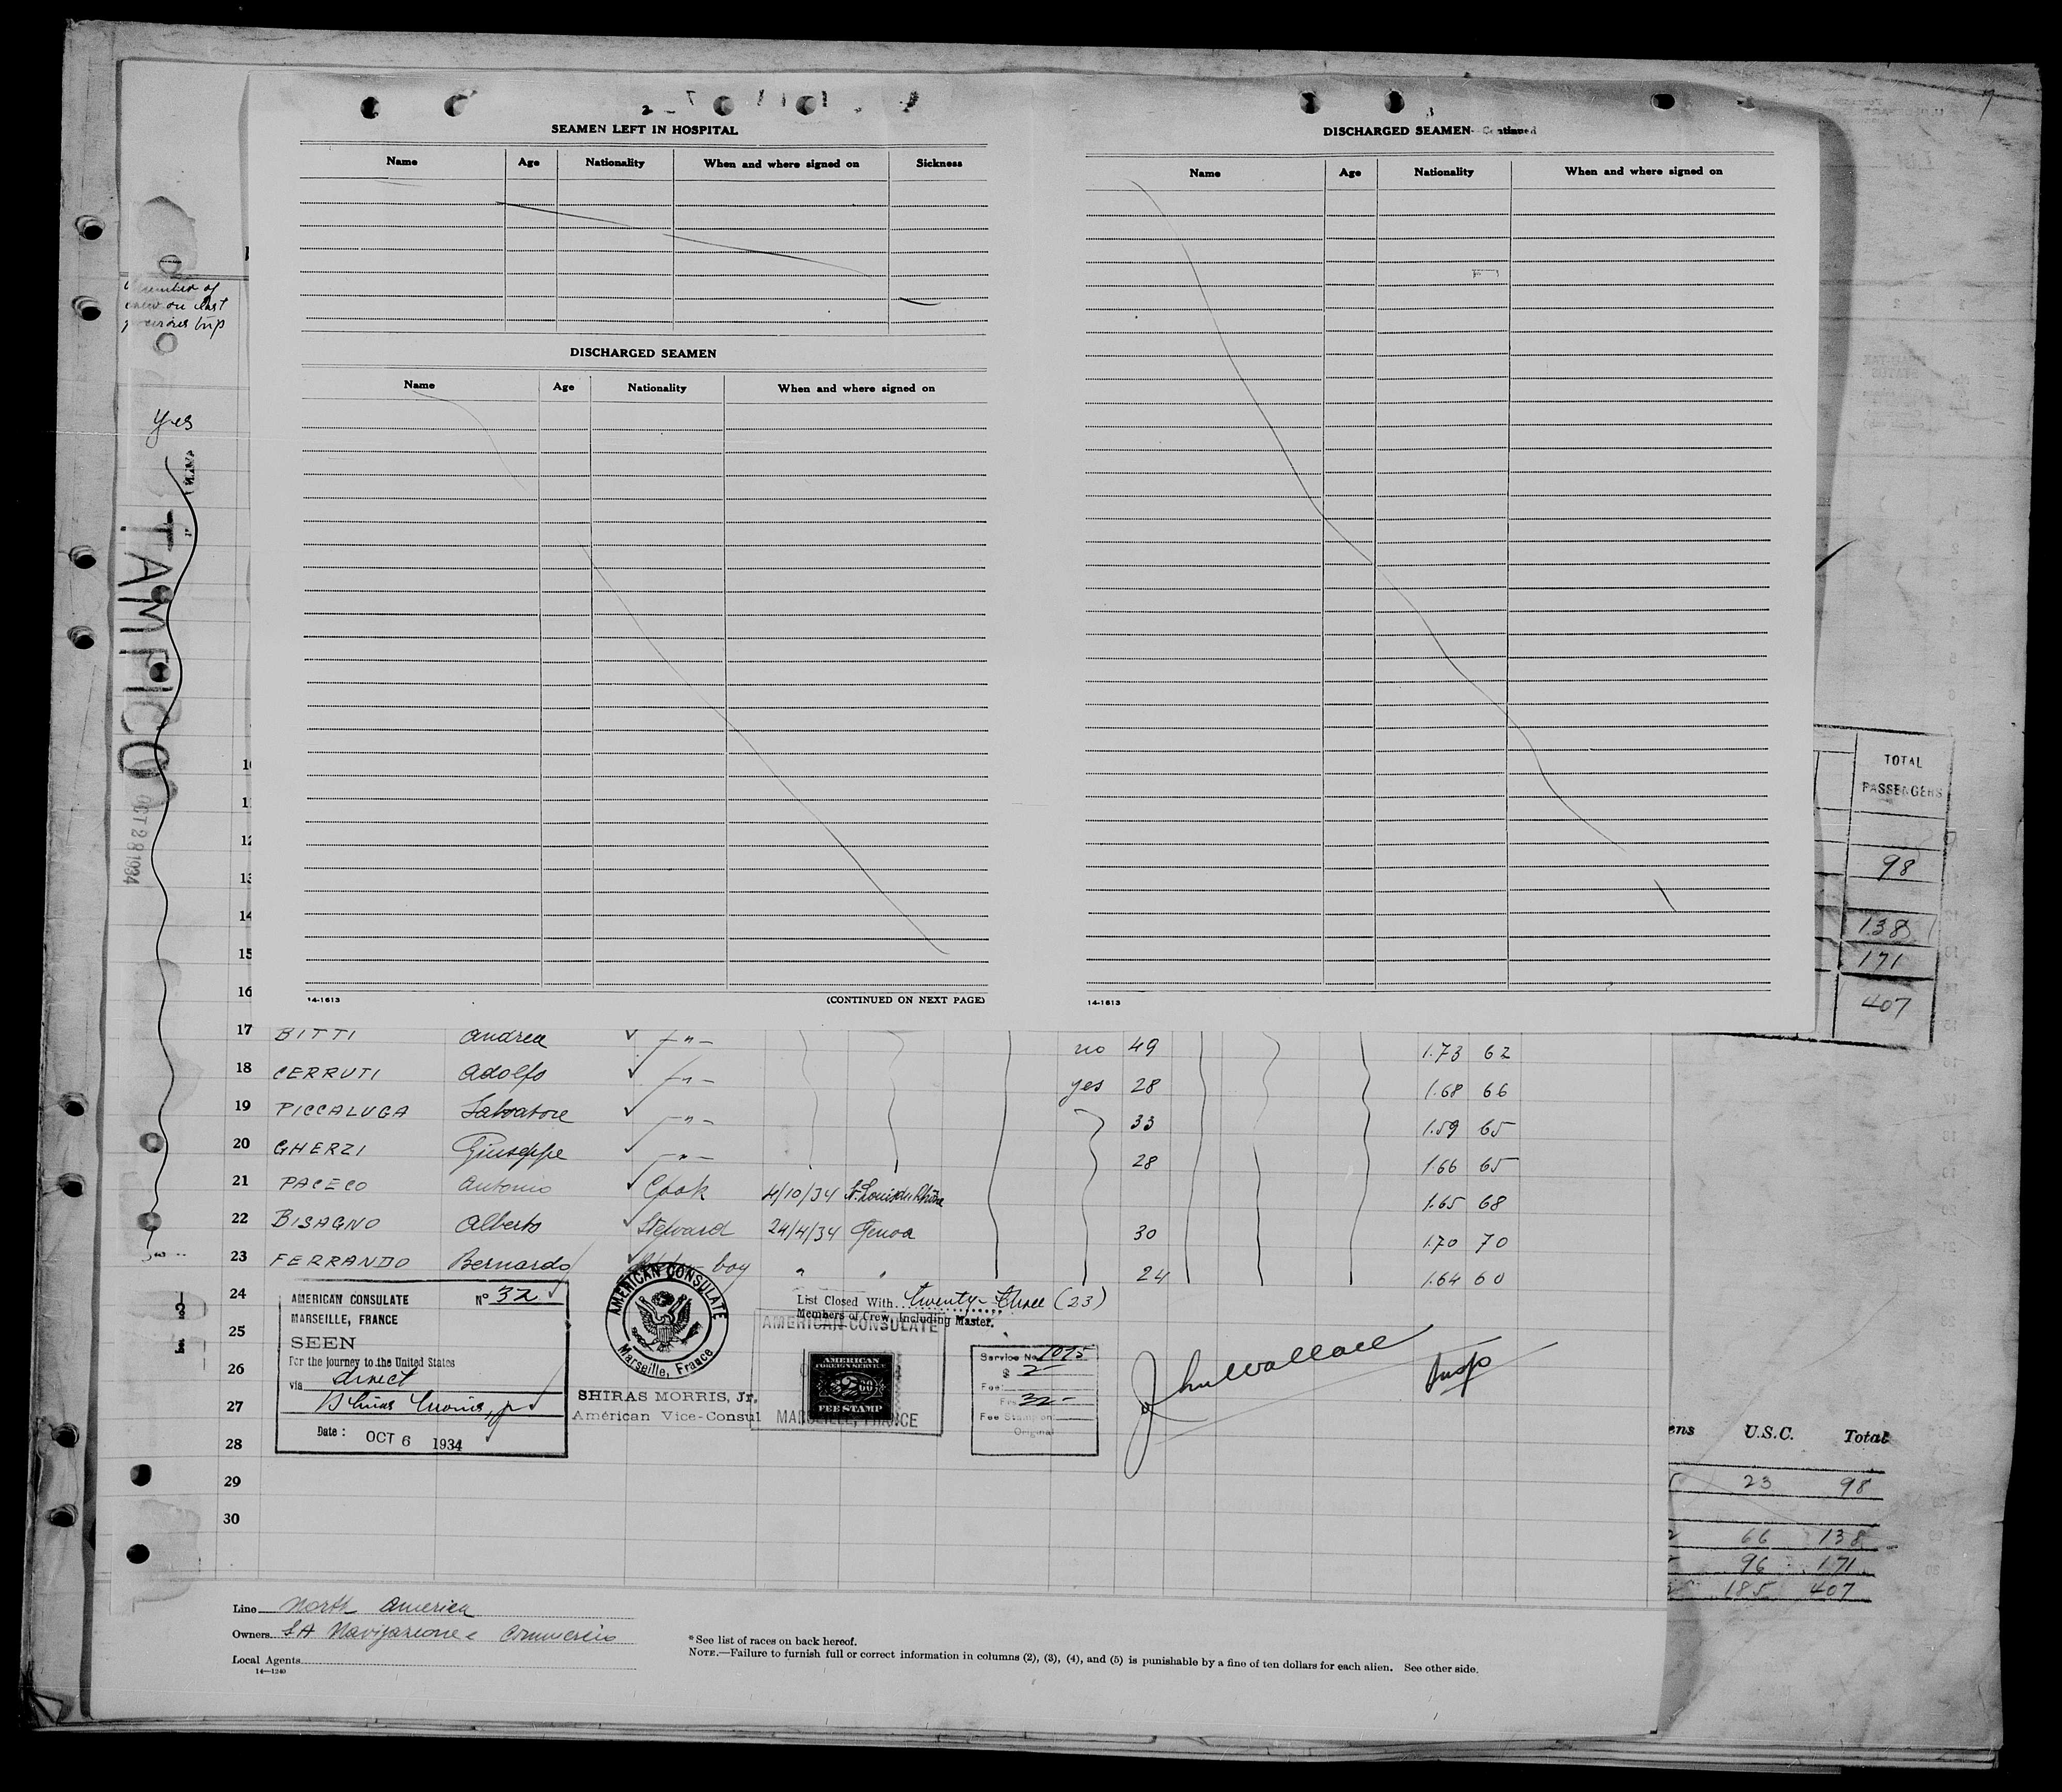 SEAMEN LEFT IN HOSPITAL
Name Age Nationality When and where signed on Sickness
DISCHARGED SEAMEN
Name Age Nationality When and where signed on
14-1613 (CONTINUED ON NEXT PAGE)
DISCHARGED SEAMEN-Continued
Name Age Nationality When and where signed on
14-1613
yes
TAMPICO
OCT 28 1934
TOTAL
PASSENGERS
98
138
171
407
12
13
14
15
16
17 BITTI Andrea ✓ —"— no 49 1.73 62
18 CERRUTI Adolfo ✓ —"— yes 28 1.68 66
19 PICCALUGA Salvatore ✓ —"— 33 1.59 65
20 GHERZI Giuseppe ✓ —"— 28 1.66 65
21 PACECO Antonio ✓ Cook 4/10/34 St. Louis du Rhône 1.65 68
22 BISAGNO Alberto ✓ Steward 24/4/34 Genoa 30 1.70 70
23 FERRANDO Bernardo ✓ boy " " 24 1.64 60
24
25
26
27
28
29
30
AMERICAN CONSULATE Nº 32
MARSEILLE, FRANCE
SEEN
For the journey to the United States
via direct
Shiras Morris, Jr
Date: OCT 6 1934
AMERICAN CONSULATE
Marseille, France
SHIRAS MORRIS, Jr.
American Vice-Consul
List Closed With twenty-three (23)
Members of Crew, Including Master.
AMERICAN CONSULATE
AMERICAN
FOREIGN SERVICE
FEE STAMP
MARSEILLE, FRANCE
Service No. 1075
$ 2-
Fee:
Frs 32-
Fee Stamp on
Original
Jno Wallace Insp
ens U.S.C. Total
23 98
66 138
96 171
185 407
Line North America
Owners SA Navigazione e Commercio
Local Agents
14-1240
*See list of races on back hereof.
NOTE.—Failure to furnish full or correct information in columns (2), (3), (4), and (5) is punishable by a fine of ten dollars for each alien. See other side.